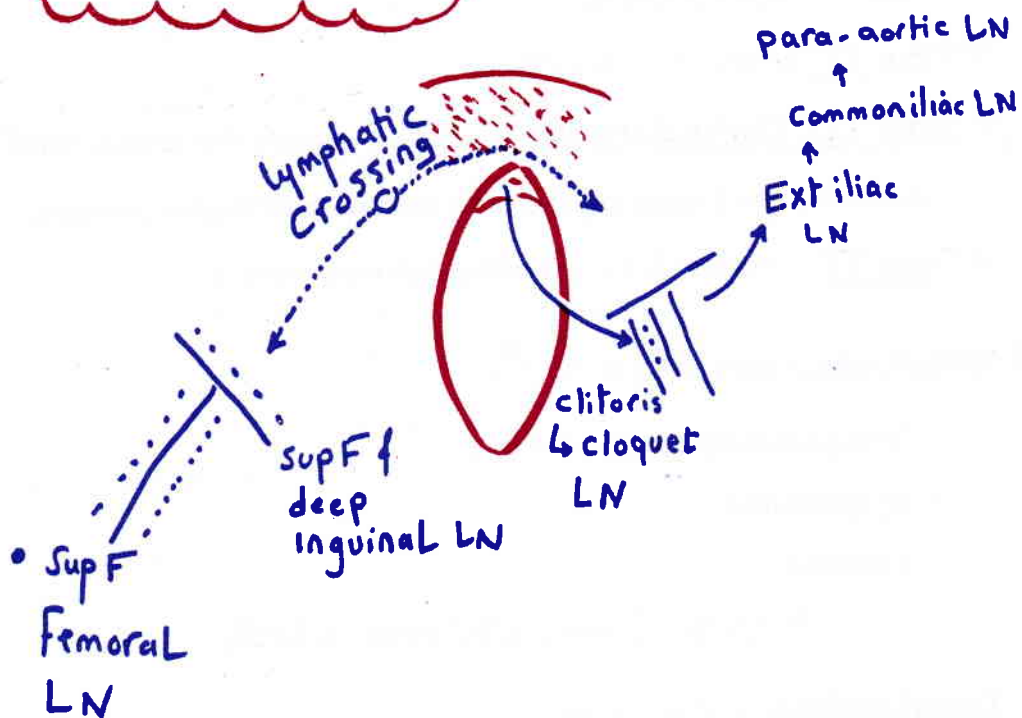 para-aortic LN
Commoniliac LN
Ext iliac
LN
lymphatic
Crossing
clitoris
↳ cloquet
LN
supF &
deep
inguinal LN
• SupF
Femoral
LN